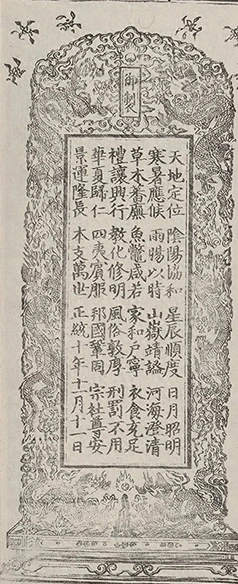 御製
天地定位 陰陽協和 星辰順度 日月昭明
寒暑應候 雨暘以時 山嶽靖謐 河海澄清
草木蕃廡 魚鱉咸若 家和戶寧 衣食充足
禮讓興行 教化修明 風俗敦厚 刑罰不用
華夏歸仁 四夷賓服 邦國鞏固 宗社奠安
景運隆長 本支萬世 正統十年十一月十一日